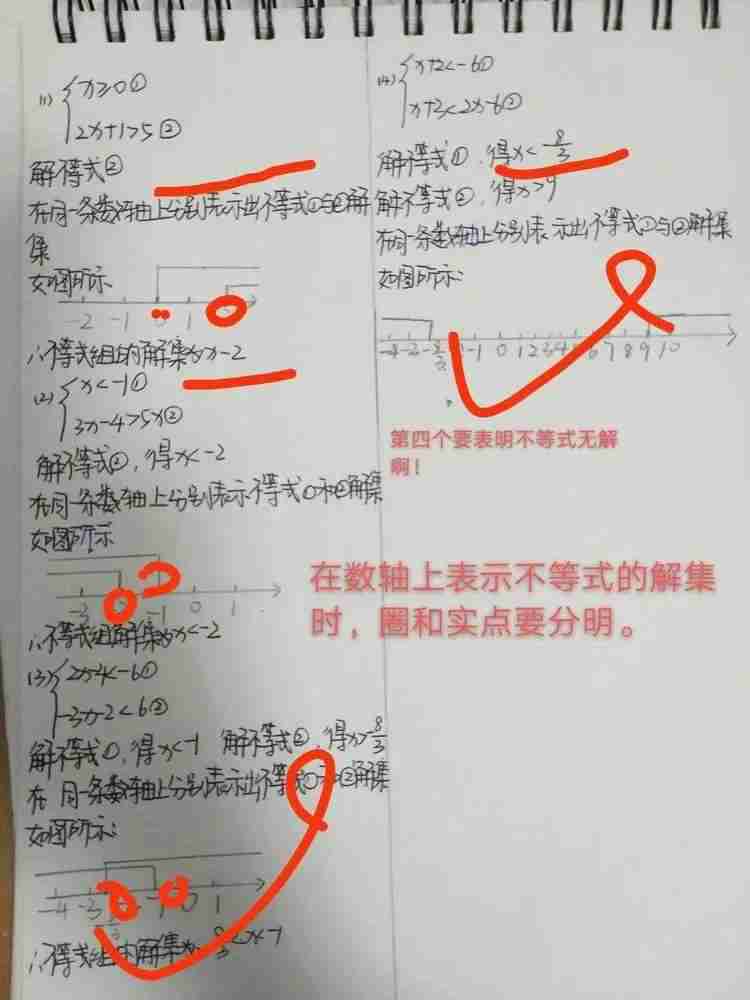 (1) {x≥0①
2x+1>5②
解不等式②
在同一条数轴上分别表示出不等式①与②解
集
如图所示
-2 -1 0 1
∴不等式组的解集为x-2
(2) {x<-1①
3x-4>5x②
解不等式②,得x<-2
在同一条数轴上分别表示不等式①和②解集
如图所示
-2 -1 0 1
∴不等式组解集为x<-2
(3) {2x-4<-6①
-3x-2<6②
解不等式①,得x<-1 解不等式②,得x>-8/3
在同一条数轴上分别表示出不等式①和②解集
如图所示:
-4 -3 -1 0 1
∴不等式组的解集为-8/3<x<-1
(4) {x+2<-6①
x+3<2x-6②
解不等式①,得x<-8/3
解不等式②,得x>9
在同一条数轴上分别表示出不等式①与②解集
如图所示:
-1 0 1 2 3 4 5 6 7 8 9 10
第四个要表明不等式无解
啊!
在数轴上表示不等式的解集
时,圈和实点要分明。